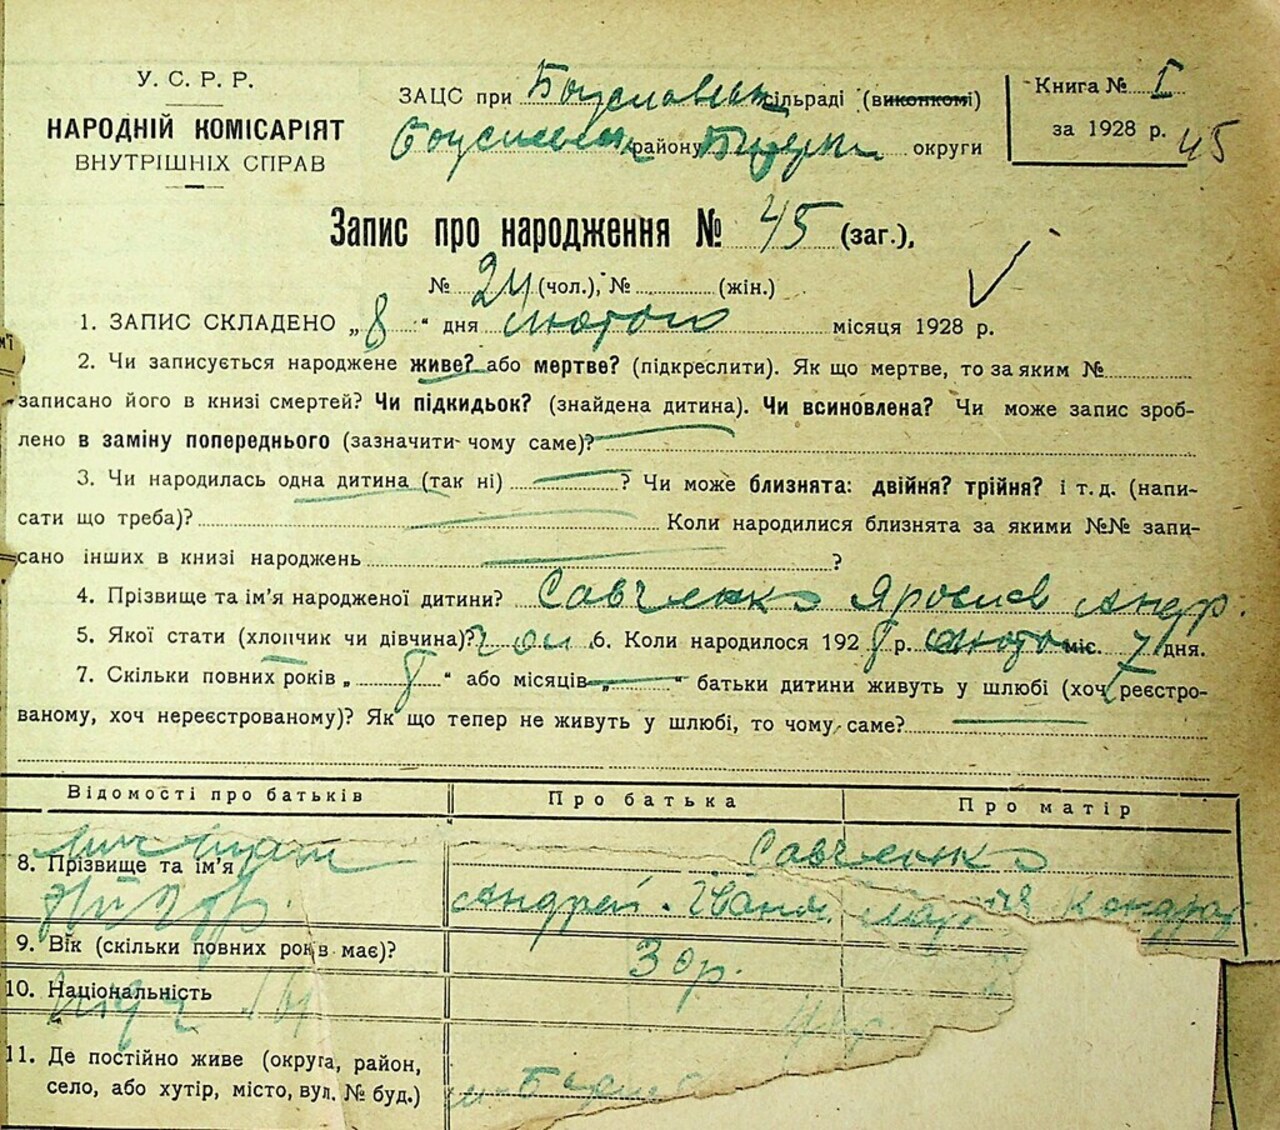 У. С. Р. Р.
НАРОДНІЙ КОМІСАРІЯТ
ВНУТРІШНІХ СПРАВ
ЗАЦС при Богуславській сільраді (виконкомі)
району округи
Книга № I
за 1928 р.
45
Запис про народження № 45 (заг.),
№ 24 (чол.), № (жін.)
1. ЗАПИС СКЛАДЕНО „8“ дня лютого місяця 1928 р.
2. Чи записується народжене живе? або мертве? (підкреслити). Як що мертве, то за яким №
записано його в книзі смертей? Чи підкидьок? (знайдена дитина). Чи всиновлена? Чи може запис зроб-
лено в заміну попереднього (зазначити чому саме)?
3. Чи народилась одна дитина (так ні) ? Чи може близнята: двійня? трійня? і т. д. (напи-
сати що треба)? Коли народилися близнята за якими №№ запи-
сано інших в книзі народжень ?
4. Прізвище та ім’я народженої дитини? Савченко Ярослав Андр.
5. Якої стати (хлопчик чи дівчина)? чол 6. Коли народилося 1928 р. лютого міс. 7 дня.
7. Скільки повних років „8“ або місяців „ “ батьки дитини живуть у шлюбі (хоч реєстро-
ваному, хоч нереєстрованому)? Як що тепер не живуть у шлюбі, то чому саме?
Відомості про батьків Про батька Про матір
8. Прізвище та ім’я Савченко
Андрей Іван. Кондрат
9. Вік (скільки повних років має)? 30 р.
10. Національність Укр.
11. Де постійно живе (округа, район,
село, або хутір, місто, вул. № буд.)